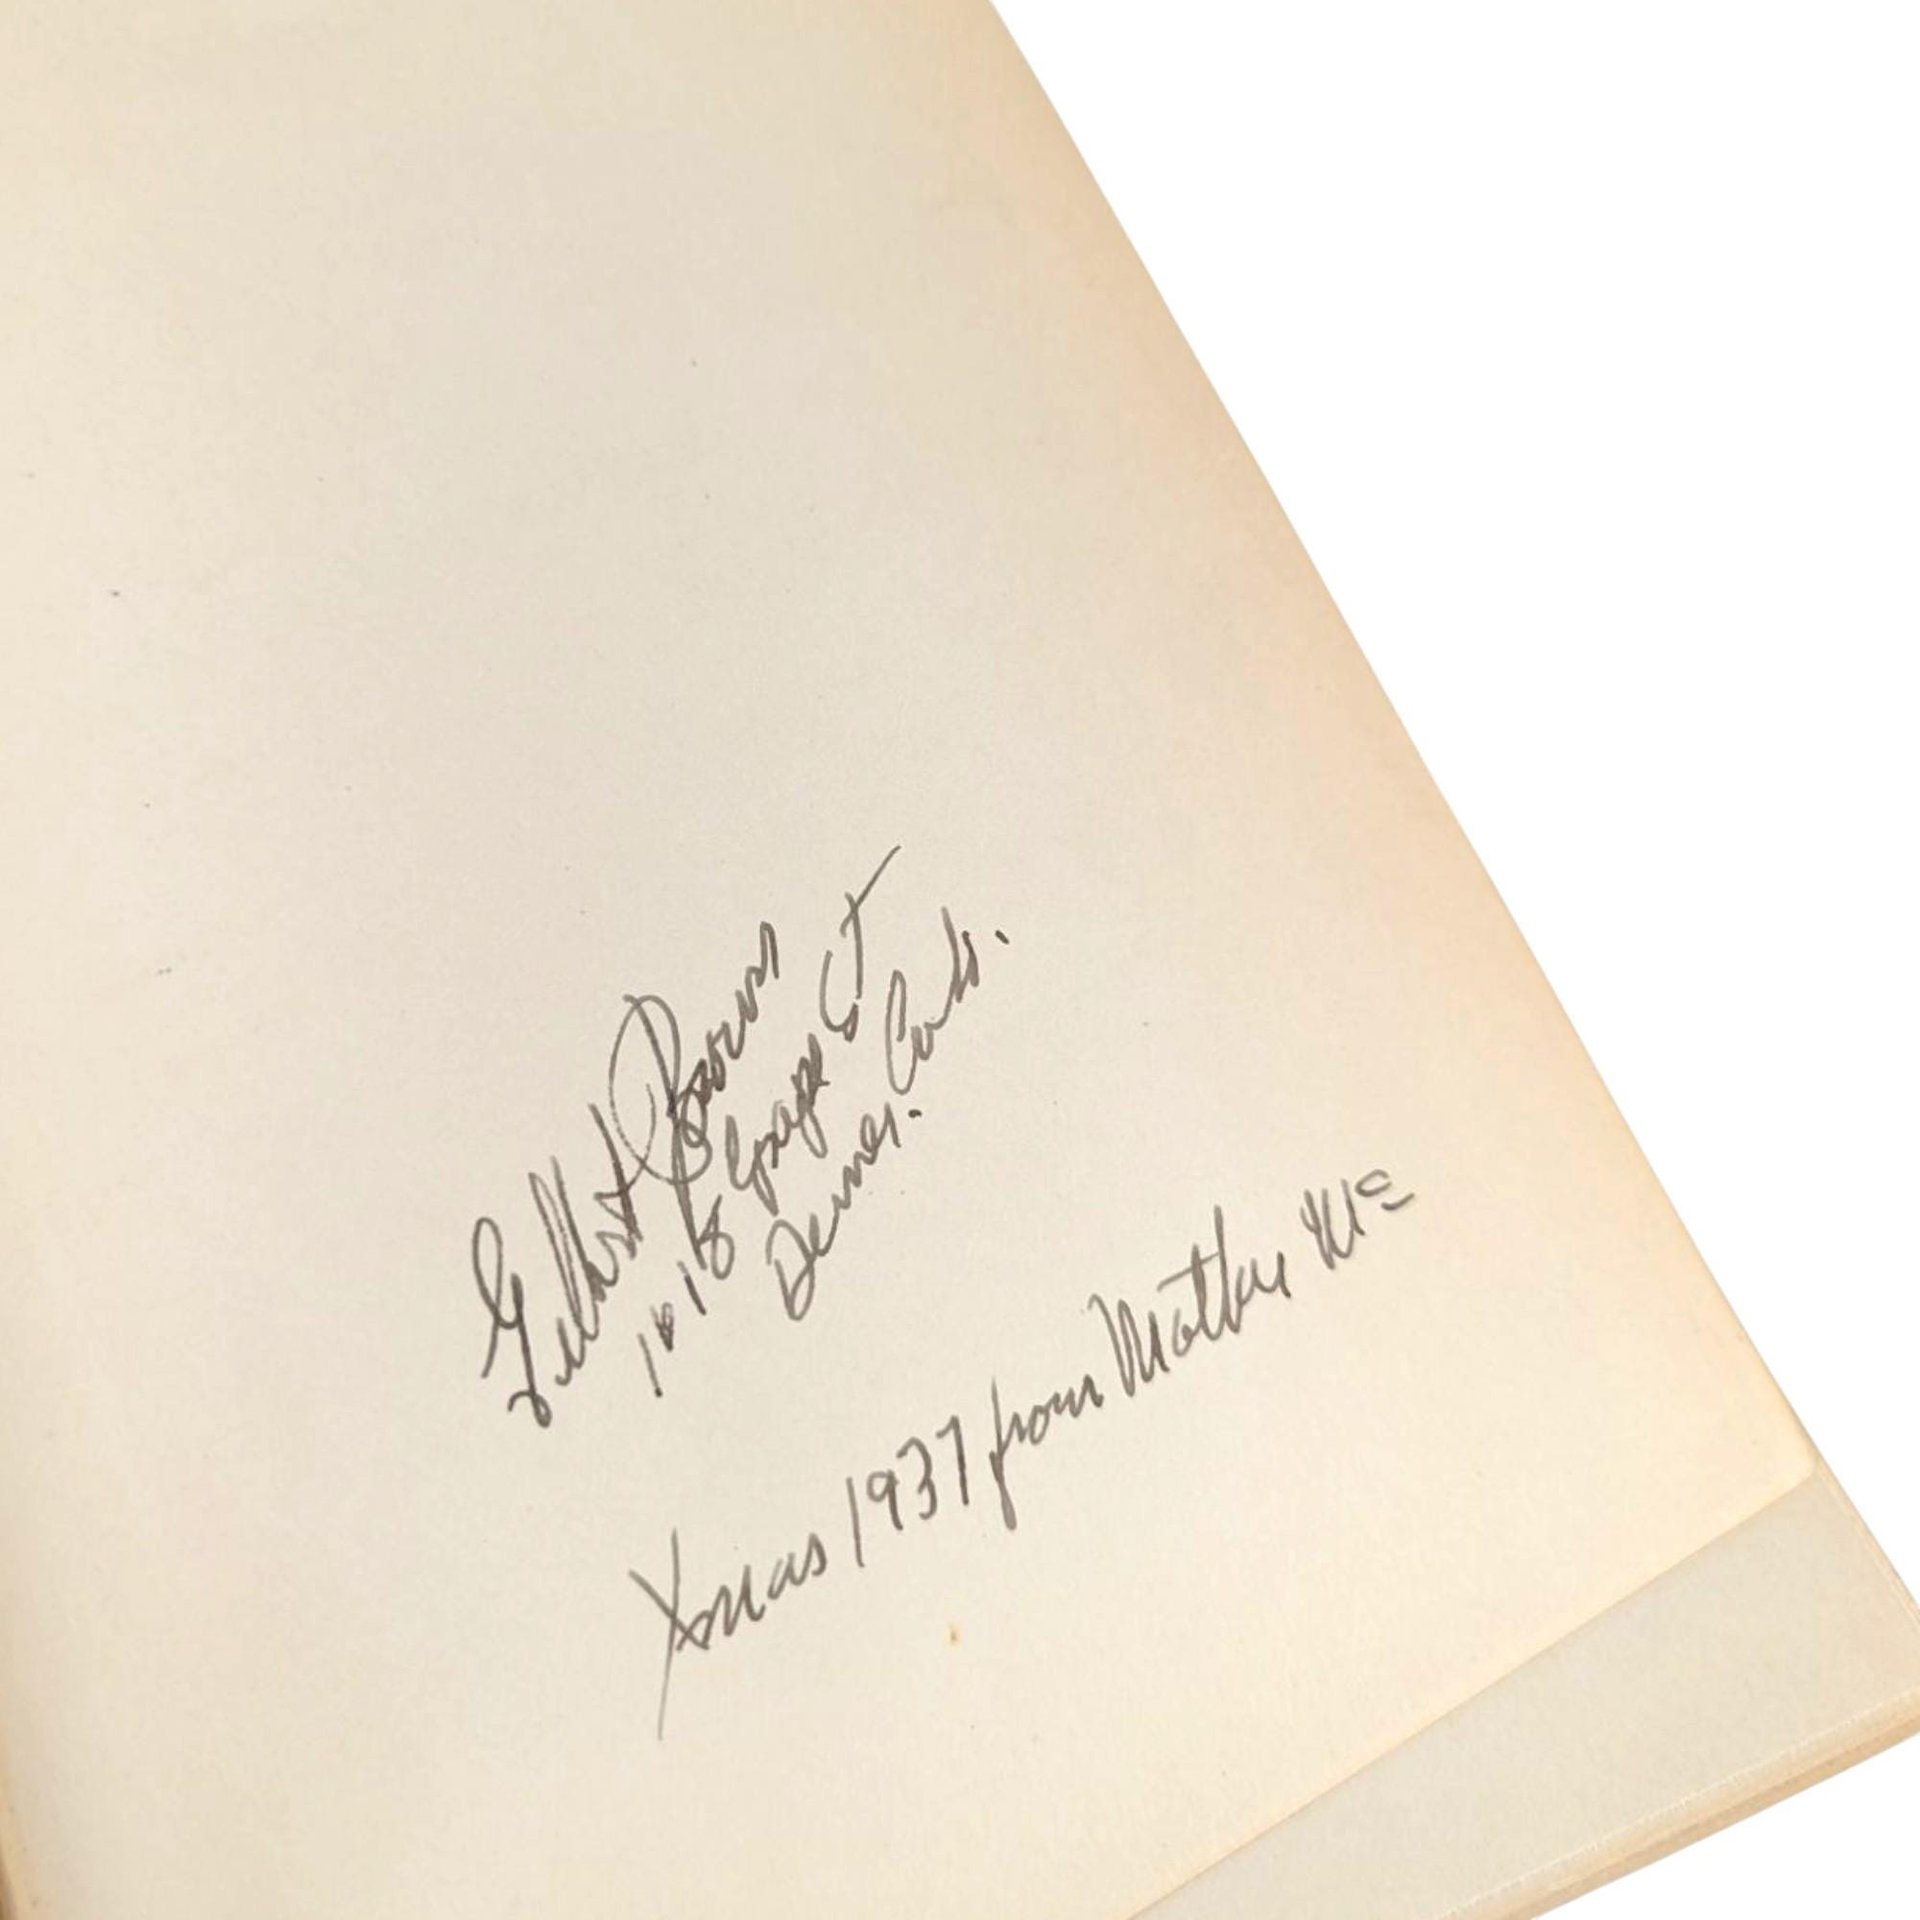 Gilbert Brown
1018 Grape St
Denver. Colo.
Xmas 1937 from Mother Mc